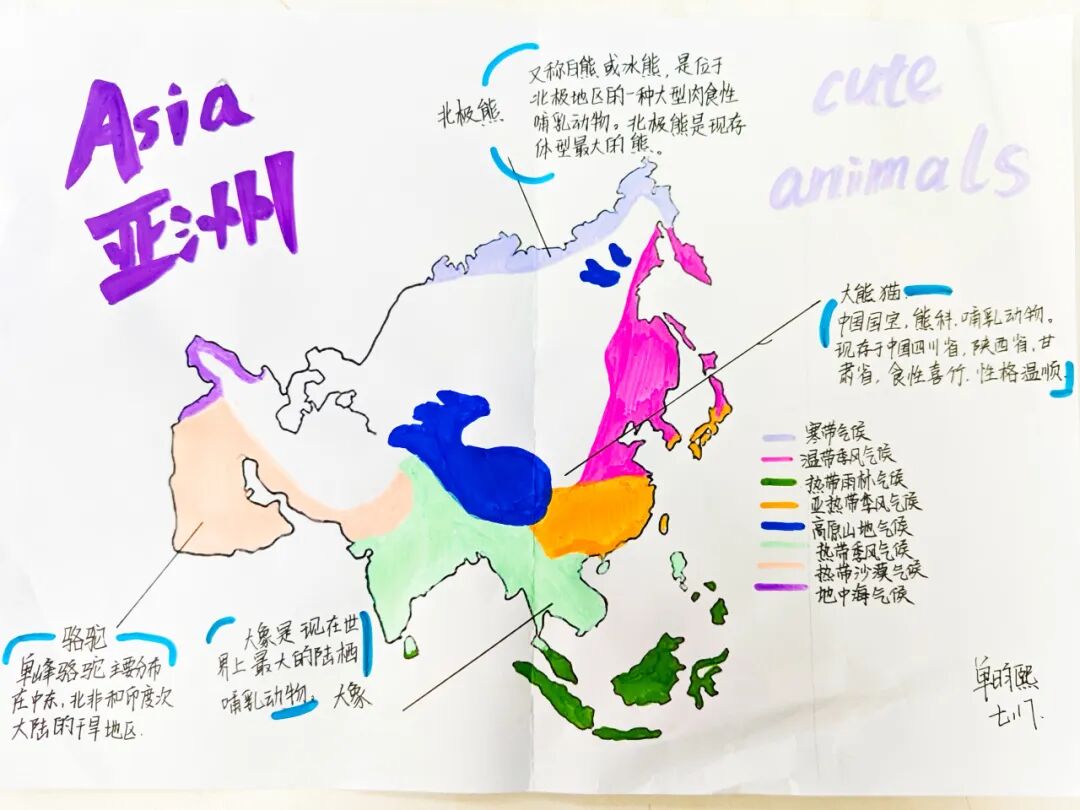 Asia
亚洲
cute
animals
北极熊
又称白熊或冰熊,是位于
北极地区的一种大型肉食性
哺乳动物。北极熊是现存
体型最大的熊。
大熊猫
中国国宝,熊科.哺乳动物。
现存于中国四川省,陕西省,甘
肃省,食性喜竹.性格温顺
寒带气候
温带季风气候
热带雨林气候
亚热带季风气候
高原山地气候
热带季风气候
热带沙漠气候
地中海气候
骆驼
单峰骆驼主要分布
在中东,北非和印度次
大陆的干旱地区.
大象是现在世
界上最大的陆栖
哺乳动物。
大象